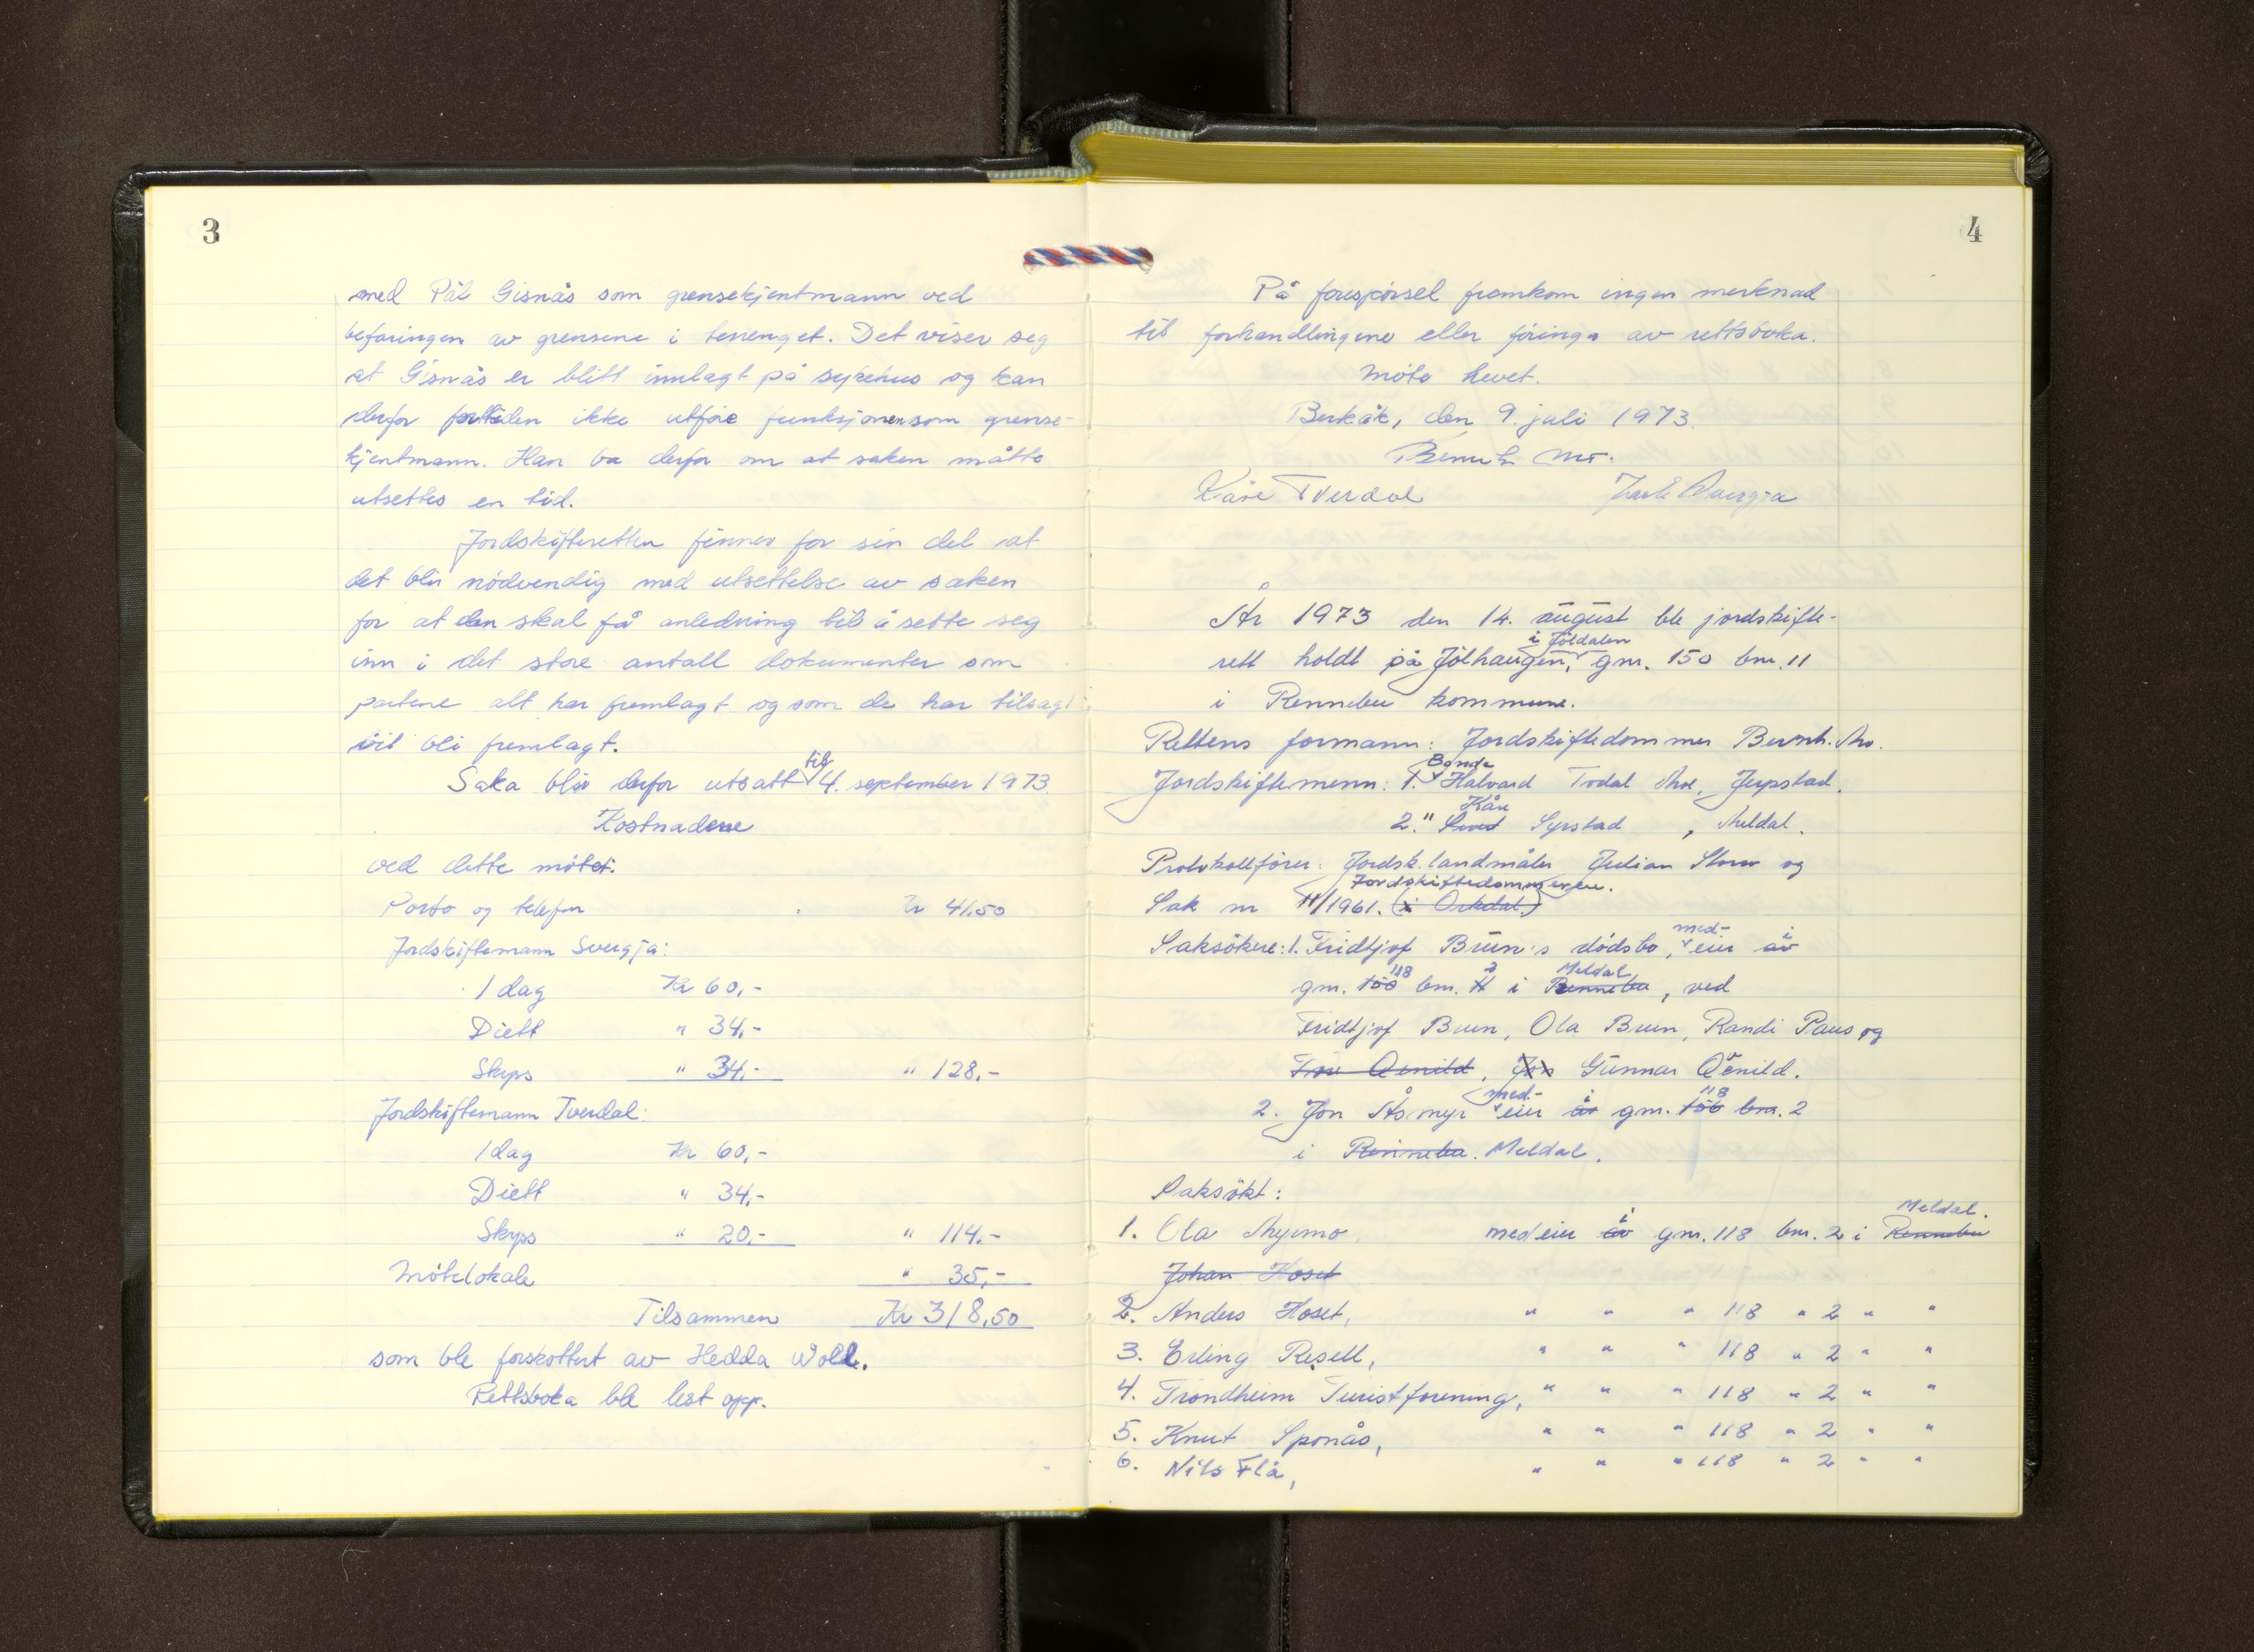 3
med Pål Gisnås som grensekjentmann ved
befaringen av grensene i terrenget. Det viser seg
at Gisnås er blitt innlagt på sykehus og kan
derfor for tiden ikke utføre funksjonen som grense-
kjentmann. Han ba derfor om at saken måtte
utsettes en tid.
Jordskifteretten finner for sin del at
det blir nödvendig med utsettelse av saken
for at den skal få anledning til å sette seg
inn i det store antall dokumenter som
partene alt har fremlagt og som de har tilsagt
vil bli fremlagt.
Saka blir derfor utsatt til 4. september 1973.
Kostnadene
ved dette møtet:
Porto og telefon Kr 41,50
Jordskiftemann Svergja:
1 dag Kr 60,-
Diett " 34,-
Skyss " 34,- " 128,-
Jordskiftemann Tverdal:
1 dag Kr 60,-
Diett " 34,-
Skyss " 20,- " 114.-
Møtelokale " 35,-
Tilsammen Kr 318,50
som ble forskottert av Hedda Wold.
Rettsboka ble lest opp.
4
På forespörsel framkom ingen merknad
til forhandlingene eller föringa av rettsboka.
Møte hevet.
Berkåk, den 9. juli 1973.
Kåre Tverdal
År 1973 den 14. august ble jordskifte-
i Jöldalen
rett holdt på Jölhaugen, gnr. 150 bnr. 11
i Rennebu kommune.
Rettens formann: Jordskiftedommer Bernh. Mo.
Bonde
Jordskiftemenn: 1. Halvard Todal Moe, Jerpstad.
Kåre
2. " Syrstad, Meldal.
Protokollförer: Jordsk.landmåler Julian Storø og
Jordskiftedommeren.
Sak nr 11/1961. (i Orkdal.)
med- i
Saksökere: 1. Fridtjof Brün's dödsbo, eier av
118 2 Meldal
gnr. bnr. i Rennebu, ved
Fridtjof Brun, Ola Brun, Randi Paus og
Gunnar Qvenild.
med- i 118
2. Jon Åsmyr eier av gnr. bnr. 2
i Rennebu. Meldal.
Saksökt:
i Meldal.
1. Ola Myrmo medeier av gnr. 118 bnr. 2 i Rennebu
Johan Hoset
2. Anders Hoset, " " " 118 " 2 " "
3. Erling Resell, " " " 118 " 2 " "
4. Trondheim Turistforening, " " " 118 " 2 " "
5. Knut Sponås, " " " 118 " 2 " "
6. Nils Flå, " " " 118 " 2 " "